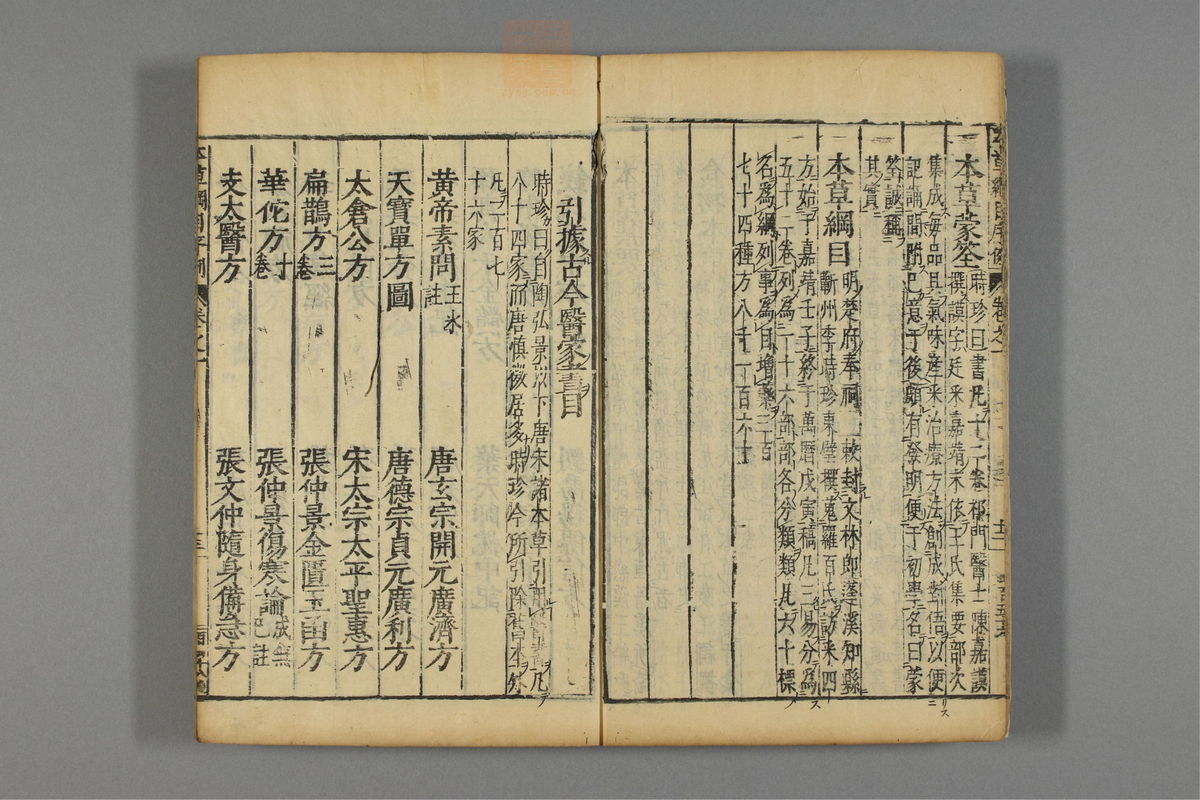 本草蒙筌時珍曰書凡十二卷祁門醫士陳嘉謨
撰謨字廷采嘉靖末依王氏集要部次
集成每品具氣味産采治療方法創成對偶以便
記誦間附己意于後頗有發明便于初學名曰蒙
筌誠稱
其實
本草綱目明楚府奉祠敕封文林郎蓬溪知縣
蘄州李時珍東璧撰蒐羅百氏訪采四
方始于嘉靖壬子終于萬曆戊寅稿凡三易分爲
五十二卷列爲一十六部部各分類類凡六十標
名爲綱列事爲目增藥三百
七十四種方八千一百六十
引據古今醫家書目
時珍曰自陶弘景以下唐宋諸本草引用醫書凡
八十四家而唐慎微居多時珍今所引除舊本外
凡二百七
十六家
黃帝素問王冰註
唐玄宗開元廣濟方
天寶單方圖
唐德宗貞元廣利方
太倉公方
宋太宗太平聖惠方
扁鵲方三卷
張仲景金匱玉函方
華佗方十卷
張仲景傷寒論成無己註
支太醫方
張文仲隨身備急方